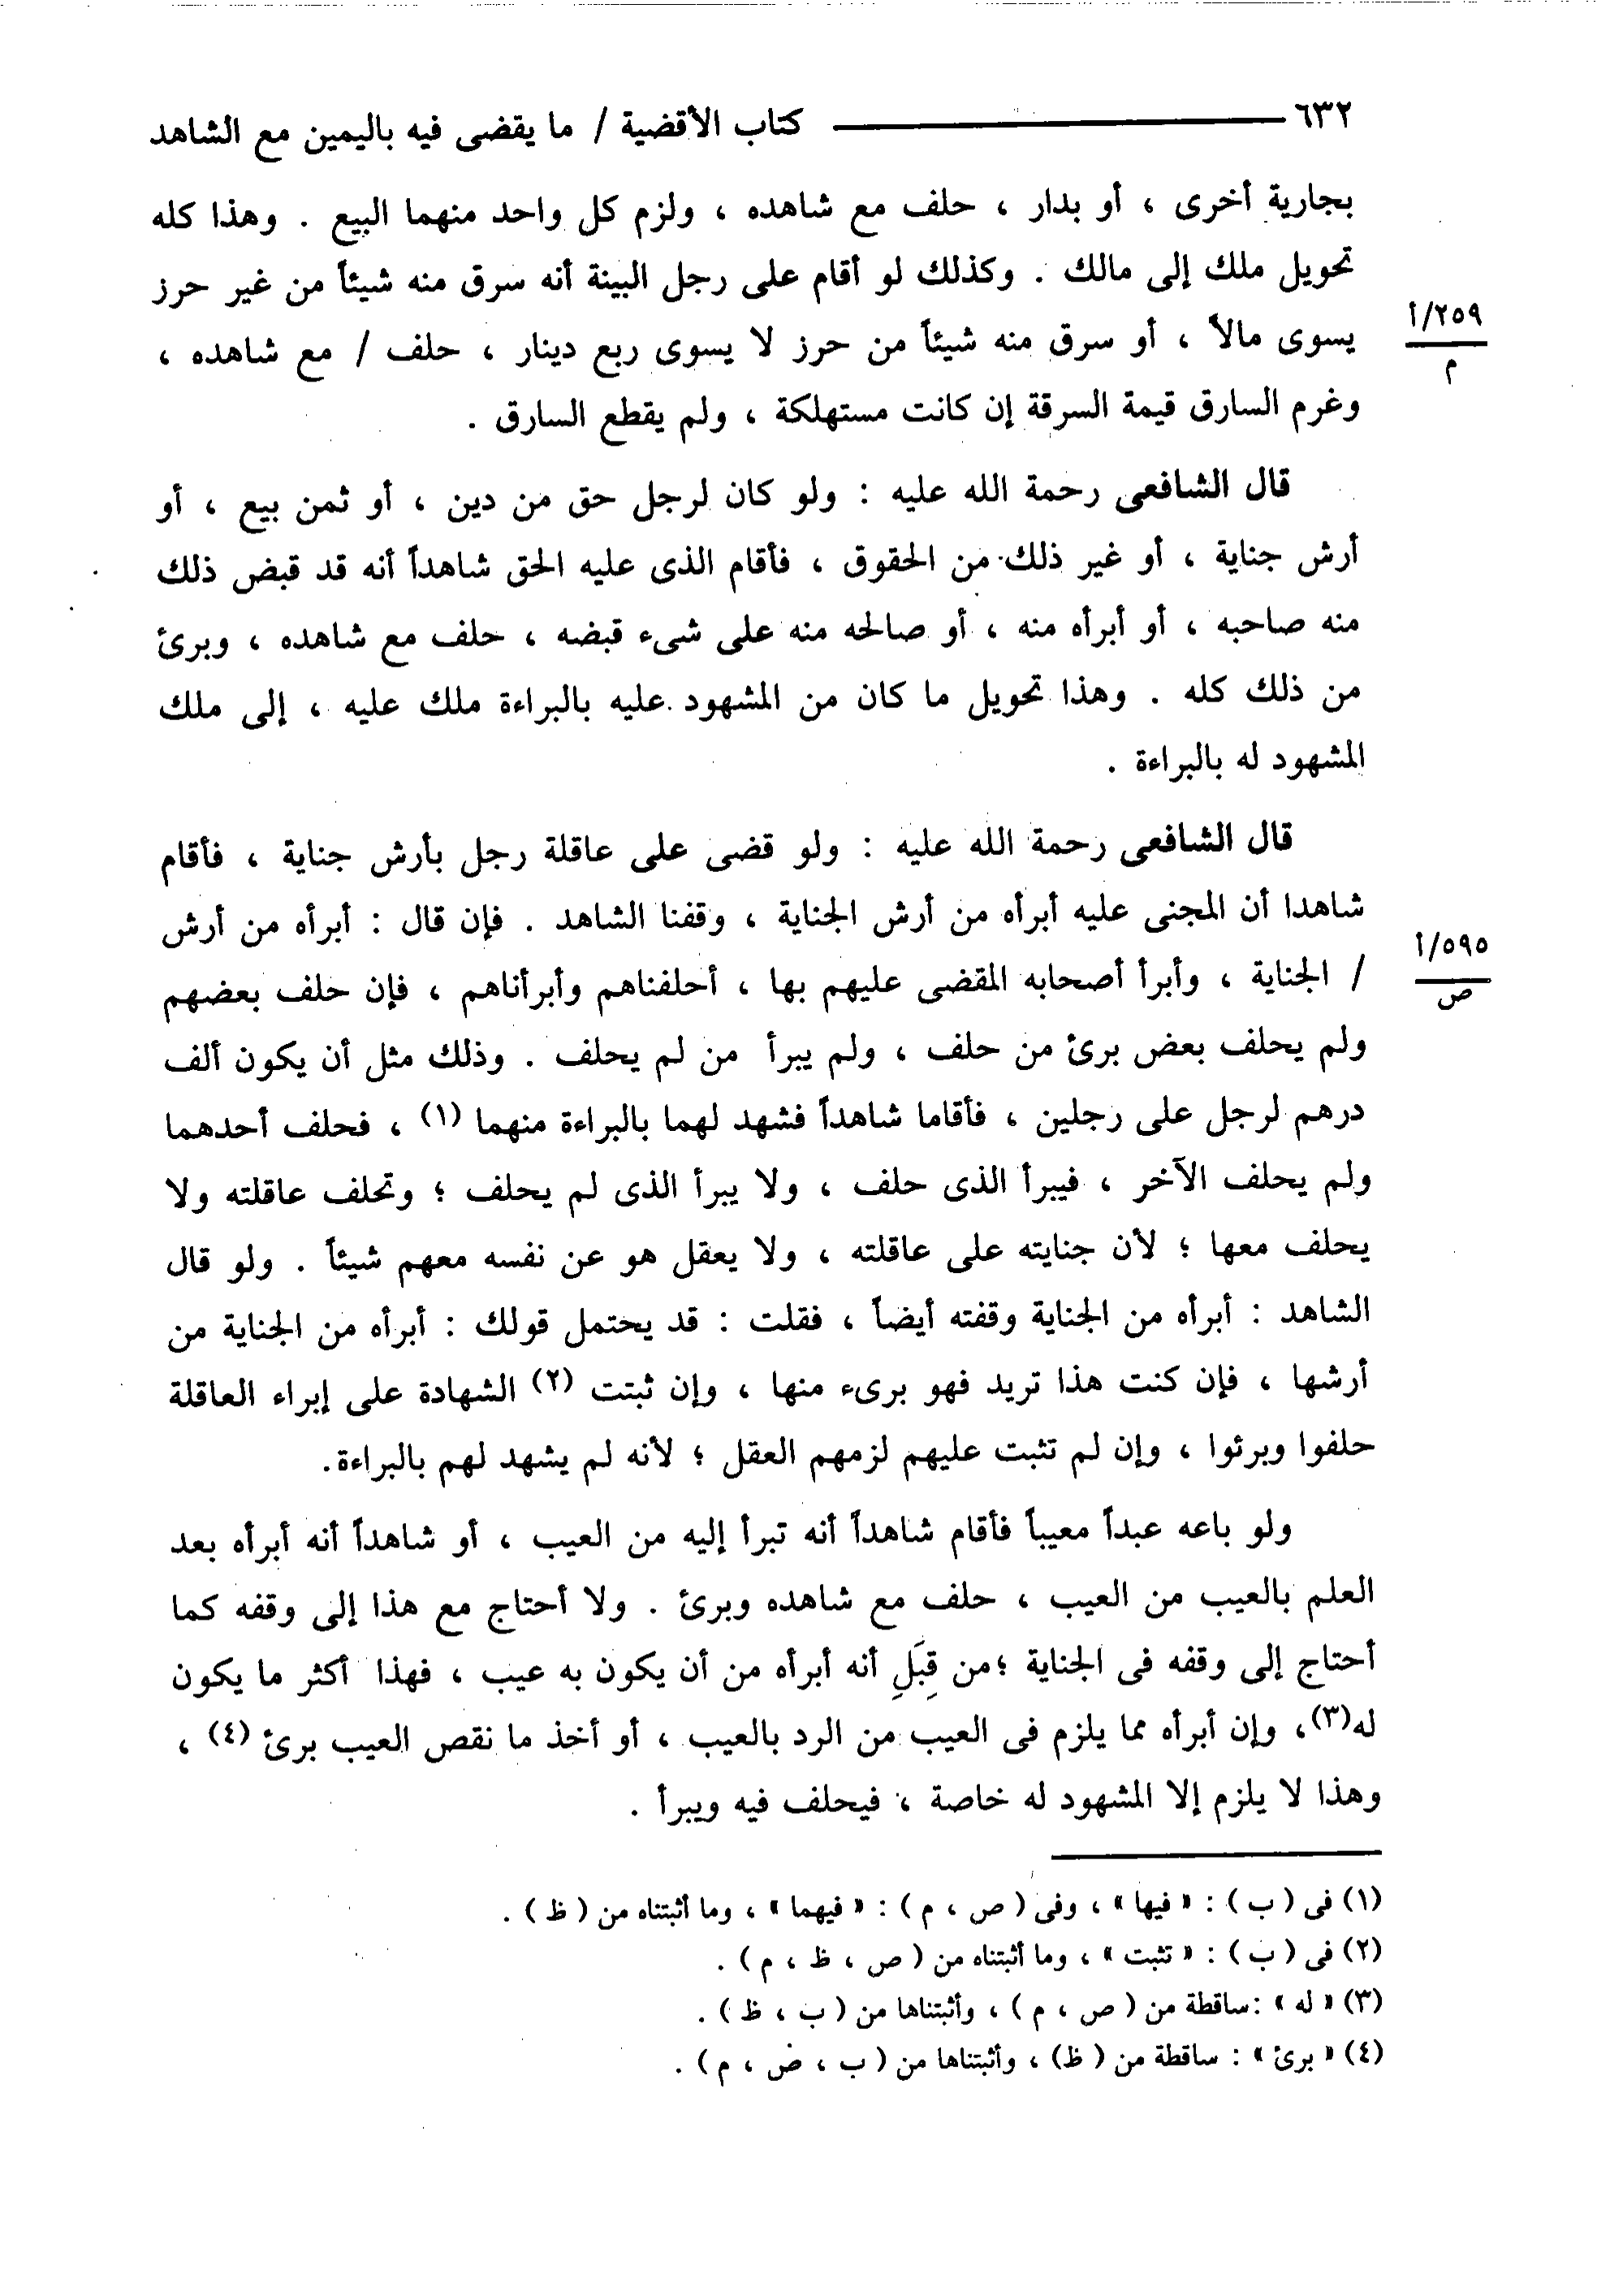 ٦٣٢ كتاب الأقضية / ما يقضى فيه باليمين مع الشاهد
بجارية أخرى ، أو بدار ، حلف مع شاهده ، ولزم كل واحد منهما البيع . وهذا كله
تحويل ملك إلى مالك . وكذلك لو أقام على رجل البينة أنه سرق منه شيئاً من غير حرز
٢٥٩/أ
م
يسوى مالاً ، أو سرق منه شيئاً من حرز لا يسوى ربع دينار ، حلف / مع شاهده ،
وغرم السارق قيمة السرقة إن كانت مستهلكة ، ولم يقطع السارق .
قال الشافعى رحمة الله عليه : ولو كان لرجل حق من دين ، أو ثمن بيع ، أو
أرش جناية ، أو غير ذلك من الحقوق ، فأقام الذى عليه الحق شاهداً أنه قد قبض ذلك
منه صاحبه ، أو أبرأه منه ، أو صالحه منه على شىء قبضه ، حلف مع شاهده ، وبرئ
من ذلك كله . وهذا تحويل ما كان من المشهود عليه بالبراءة ملك عليه ، إلى ملك
المشهود له بالبراءة .
قال الشافعى رحمة الله عليه : ولو قضى على عاقلة رجل بأرش جناية ، فأقام
شاهدا أن المجنى عليه أبرأه من أرش الجناية ، وقفنا الشاهد . فإن قال : أبرأه من أرش
٥٩٥/أ
ص
/ الجناية ، وأبرأ أصحابه المقضى عليهم بها ، أحلفناهم وأبرأناهم ، فإن حلف بعضهم
ولم يحلف بعض برئ من حلف ، ولم يبرأ من لم يحلف . وذلك مثل أن يكون ألف
درهم لرجل على رجلين ، فأقاما شاهداً فشهد لهما بالبراءة منهما (١) ، فحلف أحدهما
ولم يحلف الآخر ، فيبرأ الذى حلف ، ولا يبرأ الذى لم يحلف ؛ وتحلف عاقلته ولا
يحلف معها ؛ لأن جنايته على عاقلته ، ولا يعقل هو عن نفسه معهم شيئاً . ولو قال
الشاهد : أبرأه من الجناية وقفته أيضاً ، فقلت : قد يحتمل قولك : أبرأه من الجناية من
أرشها ، فإن كنت هذا تريد فهو برىء منها ، وإن ثبتت (٢) الشهادة على إبراء العاقلة
حلفوا وبرئوا ، وإن لم تثبت عليهم لزمهم العقل ؛ لأنه لم يشهد لهم بالبراءة.
ولو باعه عبداً معيباً فأقام شاهداً أنه تبرأ إليه من العيب ، أو شاهداً أنه أبرأه بعد
العلم بالعيب من العيب ، حلف مع شاهده وبرئ . ولا أحتاج مع هذا إلى وقفه كما
أحتاج إلى وقفه فى الجناية ؛من قِبَلِ أنه أبرأه من أن يكون به عيب ، فهذا أكثر ما يكون
له(٣)، وإن أبرأه مما يلزم فى العيب من الرد بالعيب ، أو أخذ ما نقص العيب برئ (٤) ،
وهذا لا يلزم إلا المشهود له خاصة ، فيحلف فيه ويبرأ .
(١) فى ( ب ) : « فيها » ، وفى ( ص ، م ) : « فيهما » ، وما أثبتناه من ( ظ ) .
(٢) فى ( ب ) : « تثبت » ، وما أثبتناه من ( ص ، ظ ، م ) .
(٣) « له » :ساقطة من ( ص ، م ) ، وأثبتناها من ( ب ، ظ ) .
(٤) « برئ » : ساقطة من ( ظ) ، وأثبتناها من ( ب ، ص ، م ) .